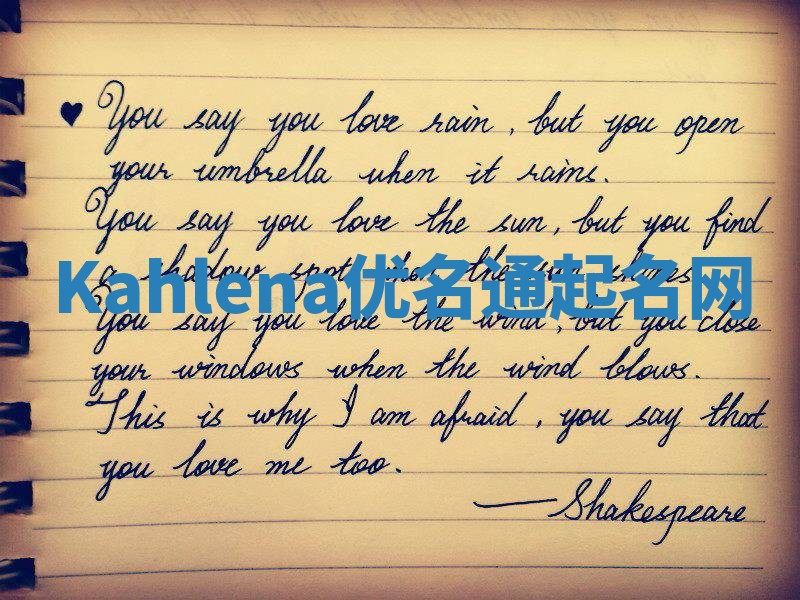 ♥ You say you love rain, but you open
your umbrella when it rains.
You say you love the sun, but you find
a shadow spot when the sun shines
Kahlena优名通起名网
You say you love the wind, but you close
your windows when the wind blows.
This is why I am afraid, you say that
you love me too.
— Shakespeare